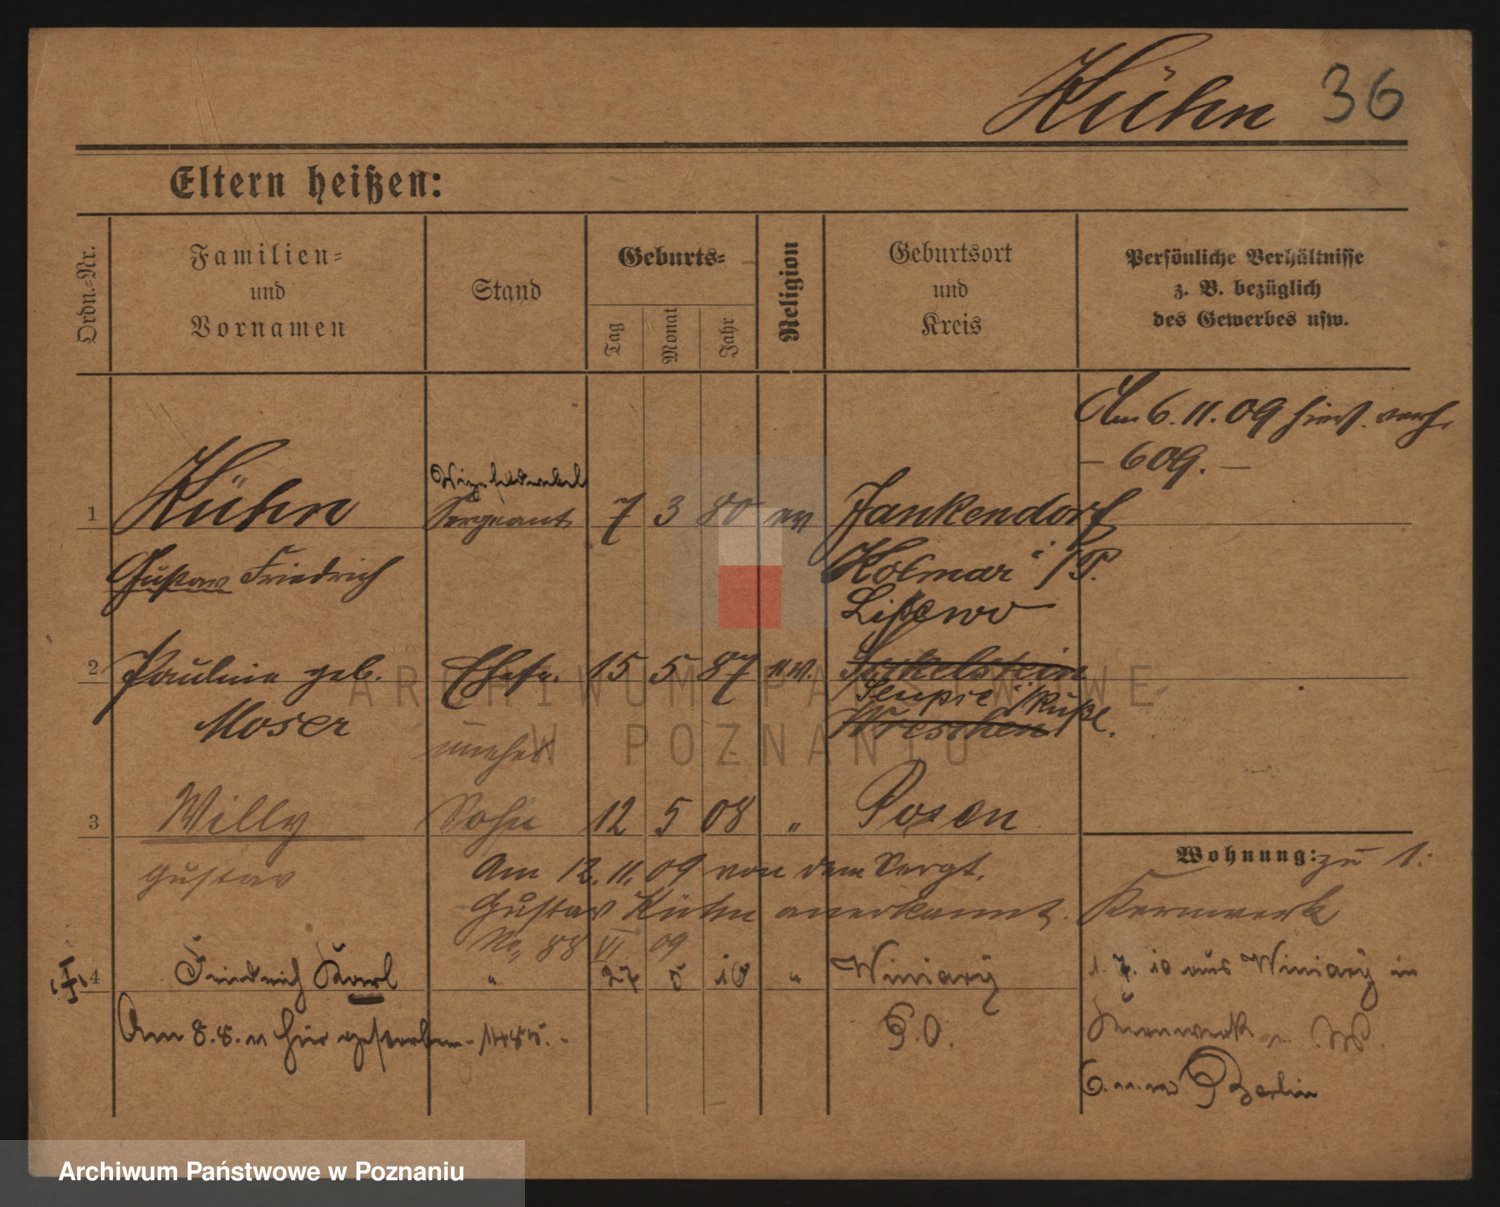 Kühn 36
Eltern heißen:
Ordn.-Nr.
Familien-
und
Vornamen
Stand
Geburts-
Tag
Monat
Jahr
Religion
Geburtsort
und
Kreis
Persönliche Verhältnisse
z. B. bezüglich
des Gewerbes usw.
Am 6.11.09 verh.
– 609. –
Vizefeldwebel
1 Kühn Sergeant 7 3 80 ev Jankendorf
Gustav Friedrich Kolmar i/P.
2 Pauline geb. Ehefr. 15 5 87 ev.
Moser Wreschen
unehel.
3 Willy Sohn 12 5 08 " Posen
Gustav
Am 12.11.09 von dem Sergt.
Gustav Kühn anerkannt.
No, 88 VI 09
Wohnung: zu 1:
Kernwerk
4 Friedrich Karl " 27 5 10 " Winiary
P. O.
Am 8.8. hier gestorben
1.7.10 aus Winiary in
Kernwerk
Berlin
ARCHIWUM PAŃSTWOWE
W POZNANIU
Archiwum Państwowe w Poznaniu